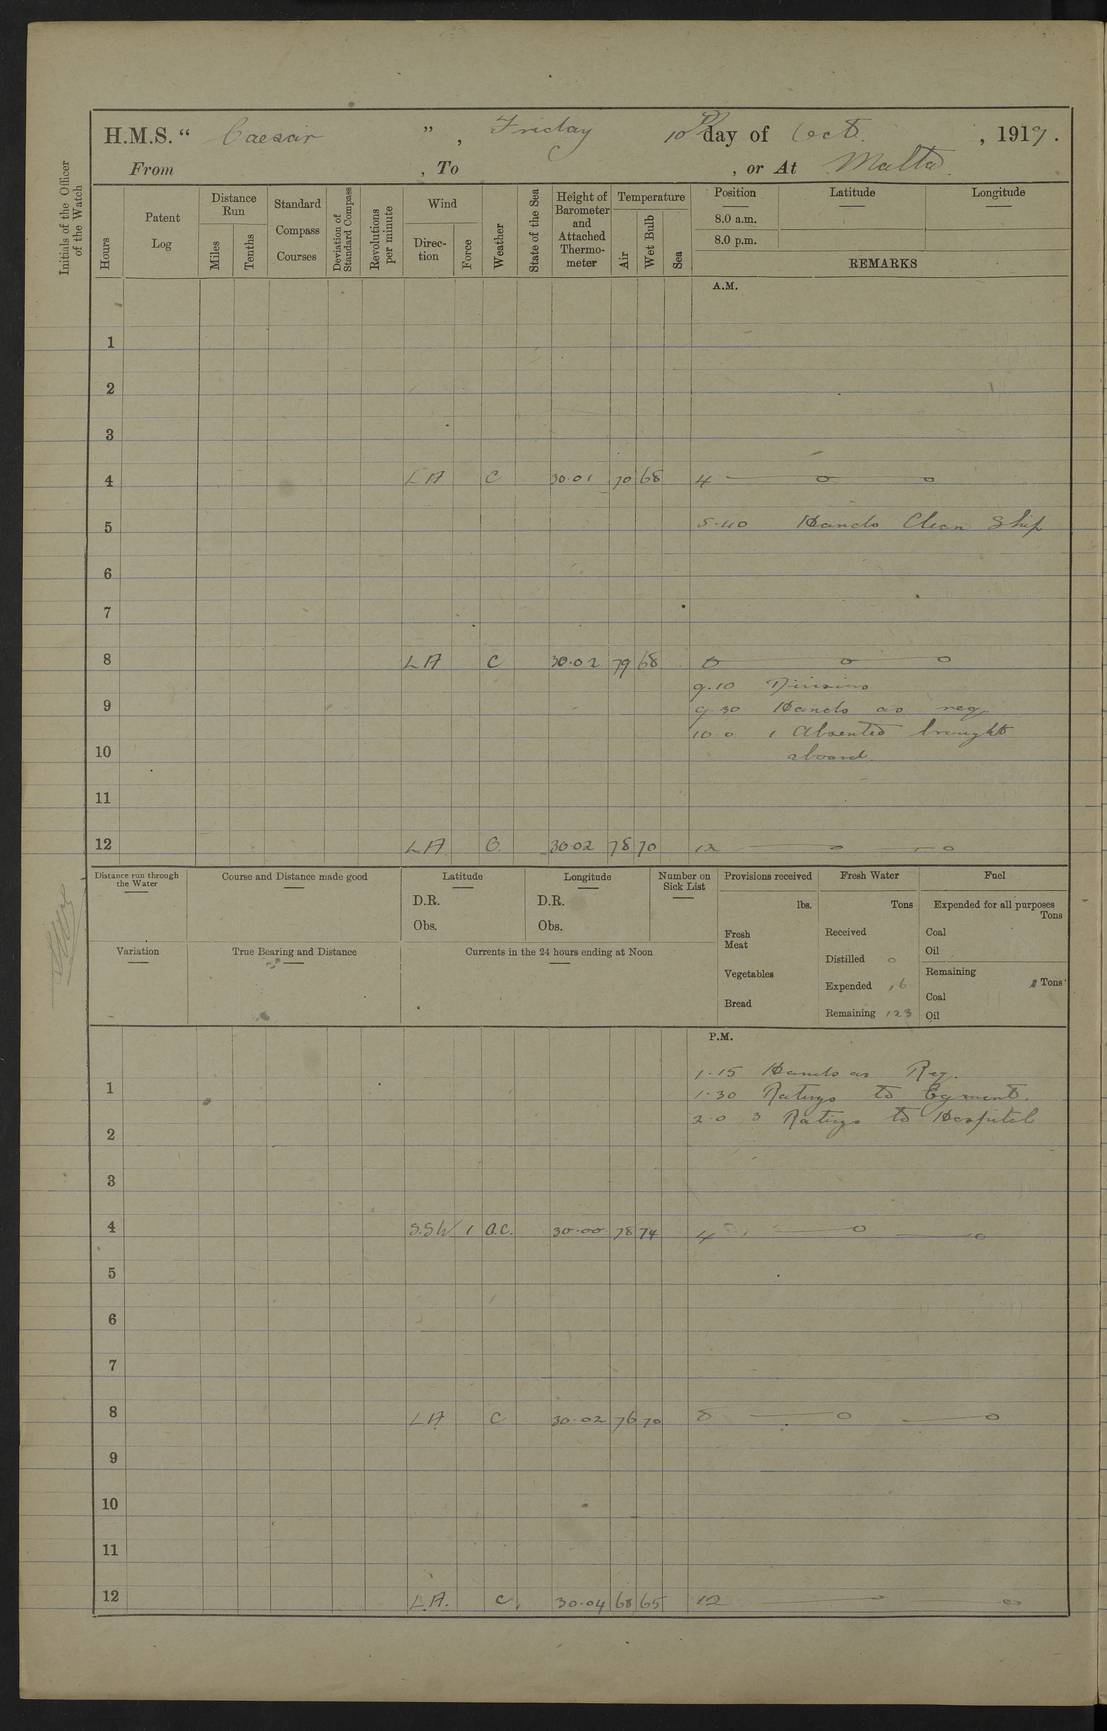 H.M.S. " Caesar ", Friday 10th day of Oct. , 1919.
From , To , or At Malta.
Initials of the Officer of the Watch
Hours
Patent Log
Distance Run
Miles
Tenths
Standard Compass Courses
Deviation of Standard Compass
Revolutions per minute
Wind
Direction
Force
Weather
State of the Sea
Height of Barometer and Attached Thermometer
Temperature
Air
Wet Bulb
Sea
Position Latitude Longitude
8.0 a.m.
8.0 p.m.
REMARKS
A.M.
1
2
3
4 LA C 30.01 70 68 4 — o o
5 5.40 Hands Clean Ship
6
7
8 LA C 30.02 79 68 8 — o o
9.10 Divisions
9 9.30 Hands as req.
10.0 1 Absentee brought
10 aboard.
11
12 LA C. 30.02 78 70 12 — o — o
Distance run through the Water
Course and Distance made good
Latitude
D.R.
Obs.
Longitude
D.R.
Obs.
Number on Sick List
Provisions received
lbs.
Fresh Meat
Vegetables
Bread
Fresh Water
Tons
Received
Distilled 0
Expended 16
Remaining 123
Fuel
Expended for all purposes
Tons
Coal
Oil
Remaining
Tons
Coal
Oil
Variation
True Bearing and Distance
Currents in the 24 hours ending at Noon
P.M.
1.15 Hands as Req.
1 1.30 Ratings to Egmont.
2.0 3 Ratings to Hospital
2
3
4 S.SW 1 O.C. 30.00 78 74 4 — o — o
5
6
7
8 LA C 30.02 76 70 8 — o — o
9
10
11
12 L.A. C. 30.04 68 65 12 — o